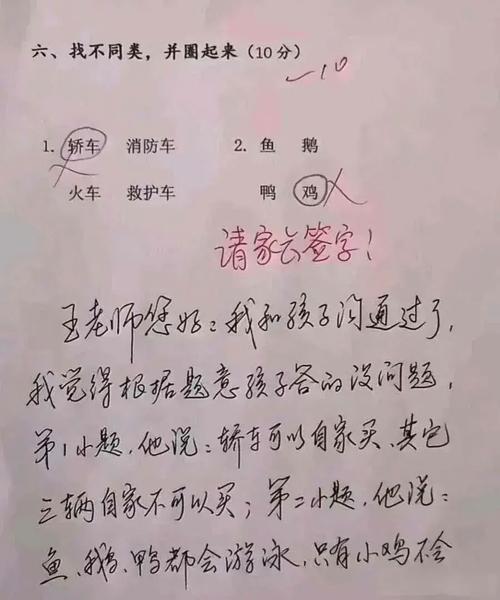 六、找不同类，并圈起来（10分）
-10
1. 轿车 消防车 2. 鱼 鹅
火车 救护车 鸭 鸡
请家长签字！
王老师您好：我和孩子沟通过了，
我觉得根据题意孩子答的没问题，
第1小题，他说：轿车可以自家买、其它
三辆自家不可以买；第二小题，他说：
鱼、鹅、鸭都会游泳，只有小鸡不会